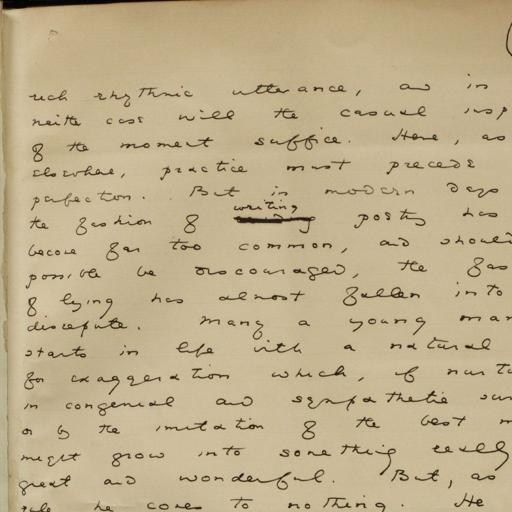 rich rhythmic utterance, as in
neither case will the casual insp
of the moment suffice. Here, as
elsewhere, practice must precede
perfection. But in modern days
the fashion of writing poetry has
become far too common, and should
possible be discouraged, the fas
of lying has almost fallen into
disrepute. Many a young man
starts in life with a natural
for exaggeration which, if nurtu
in congenial and sympathetic sur
or by the imitation of the best m
might grow into something really
great and wonderful. But, as
rule he comes to nothing. He